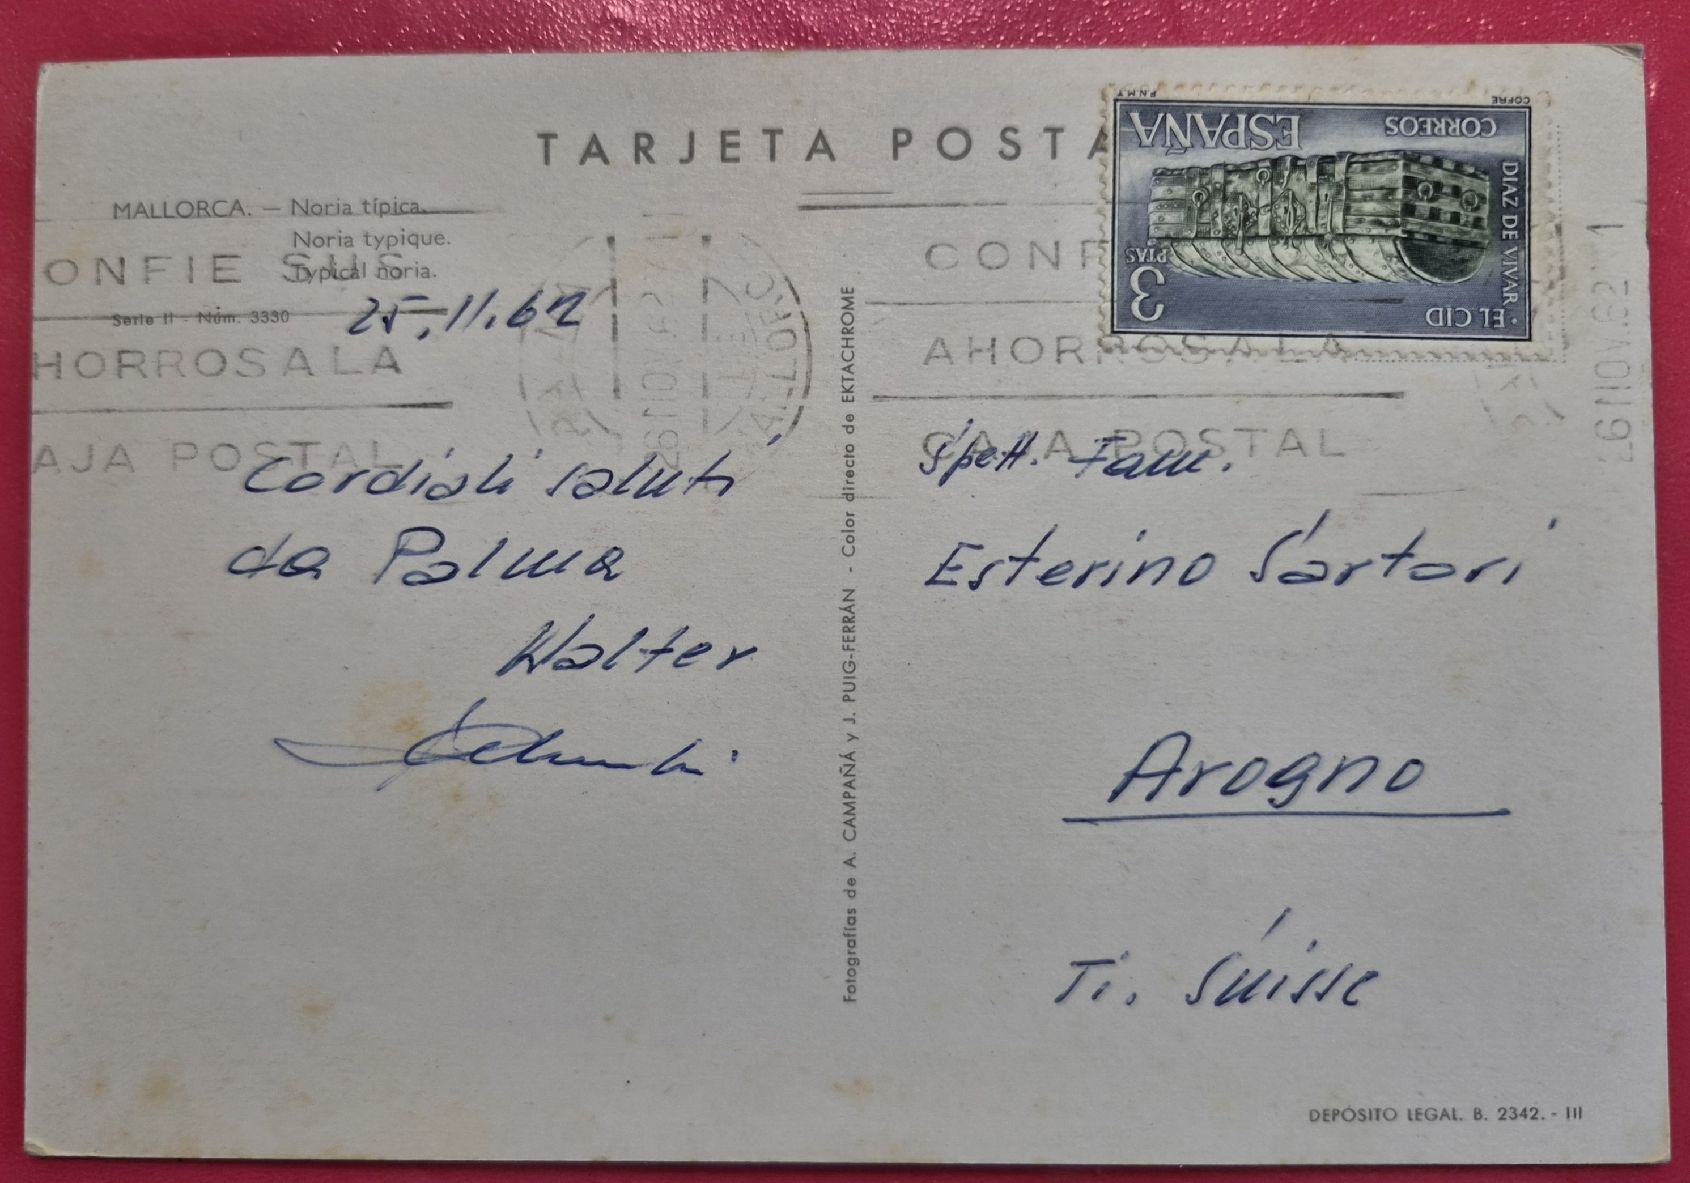 TARJETA POSTA
MALLORCA. — Noria típica.
Noria typique.
Typical noria.
Serie II - Núm. 3330
25.11.62
ONFIE SUS
HORROS A LA
AJA POSTAL
PALMA
26 NOV 62
MALLORC
CONF
AHORROS A LA
CAJA POSTAL
26 NOV. 62
F.N.M.T
COFRE
ESPAÑA
CORREOS
3
PTAS
EL CID · DIAZ DE VIVAR
Cordiali saluti
da Palma
Walter
Spett. Fam.
Esterino Sartori
Arogno
Ti. Suisse
Fotografías de A. CAMPAÑÁ y J. PUIG-FERRÁN - Color directo de EKTACHROME
DEPÓSITO LEGAL. B. 2342. - III